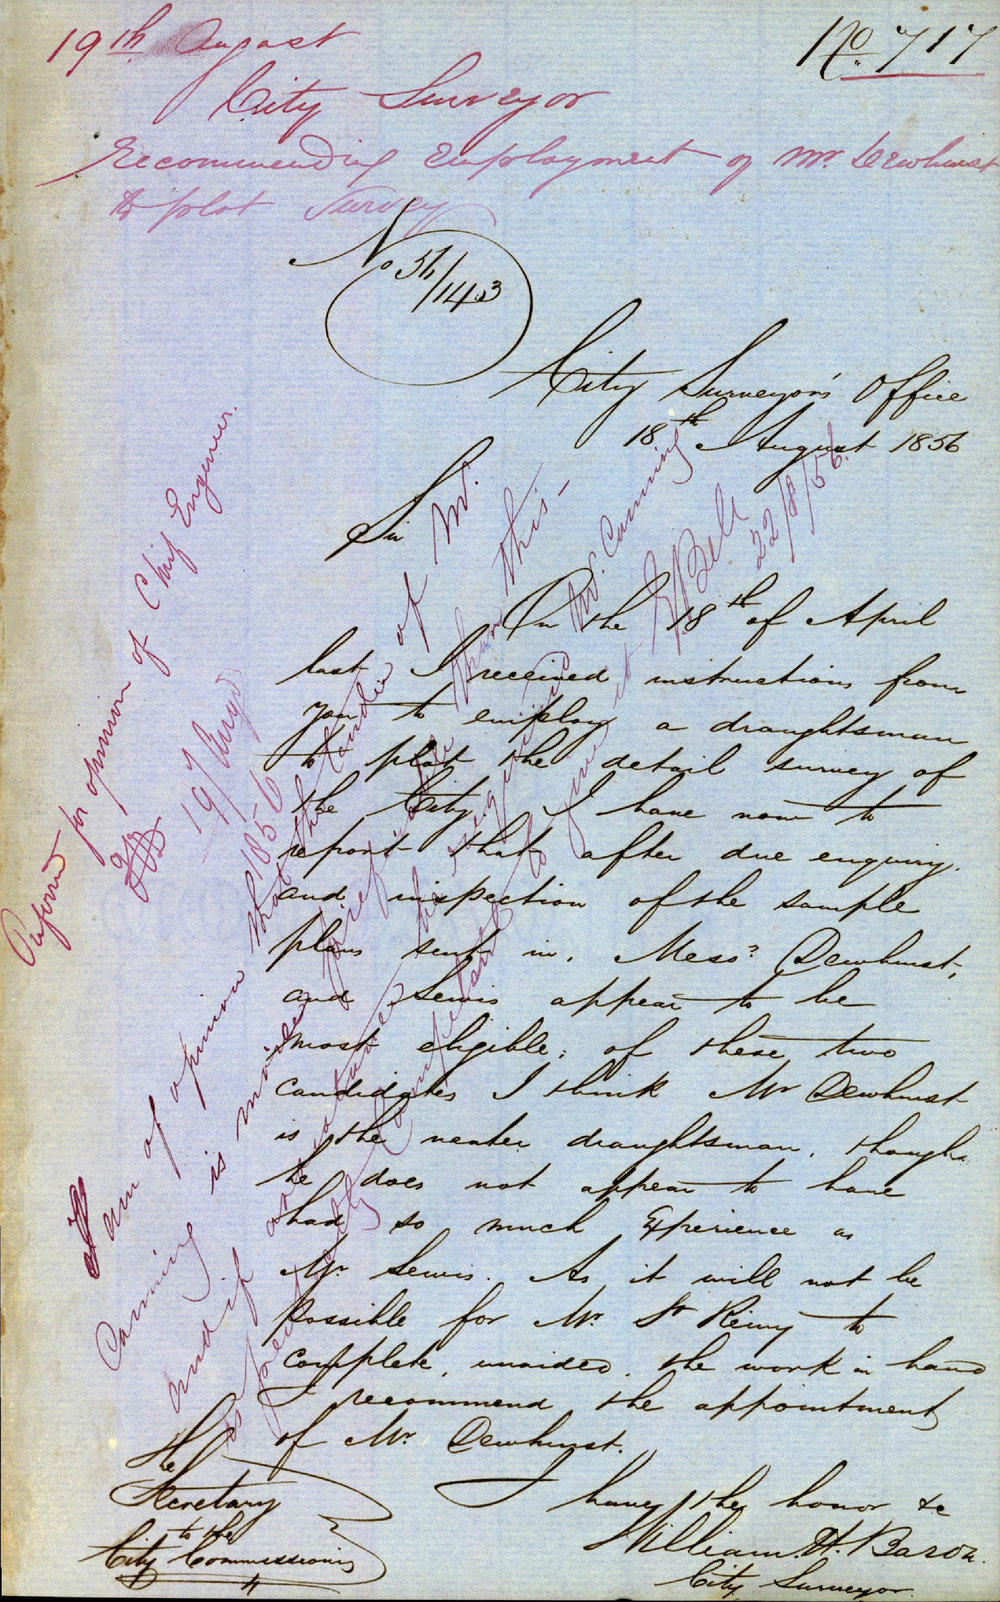 19th August
No. 717
City Surveyor
Recommending employment of Mr Dewhurst
to plot survey
No 56/143
City Surveyor's Office
18th August 1856
Sir
On the 18th of April
last I received instructions from
you to employ a draughtsman
to plot the detail survey of
the City. I have now to
report that after due enquiry,
and inspection of the sample
plans sent in, Messrs Dewhurst,
and Lewis appear to be
most eligible; of these two
candidates I think Mr Dewhurst
is the neater draughtsman, though
he does not appear to have
had so much Experience as
Mr. Lewis. As it will not be
possible for Mr. St Remy to
complete, unaided, the work in hand
I recommend the appointment
of Mr. Dewhurst.
I have the honor &c
William H. Baron.
City Surveyor.
The
Secretary
to the
City Commissioners
Referred for opinion of Chief Engineer.
19/ Augt
1856
I am of opinion that the tender of Mr.
Canning is more preferable than this –
and if assistance be required Mr. Canning
is perfectly competent to give it
E Bell
22/8/56.